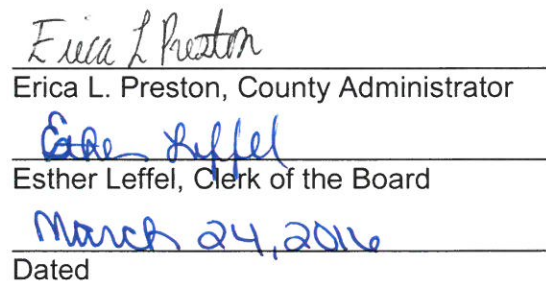 Erica L Preston
Erica L. Preston, County Administrator
Esther Leffel
Esther Leffel, Clerk of the Board
March 24, 2016
Dated